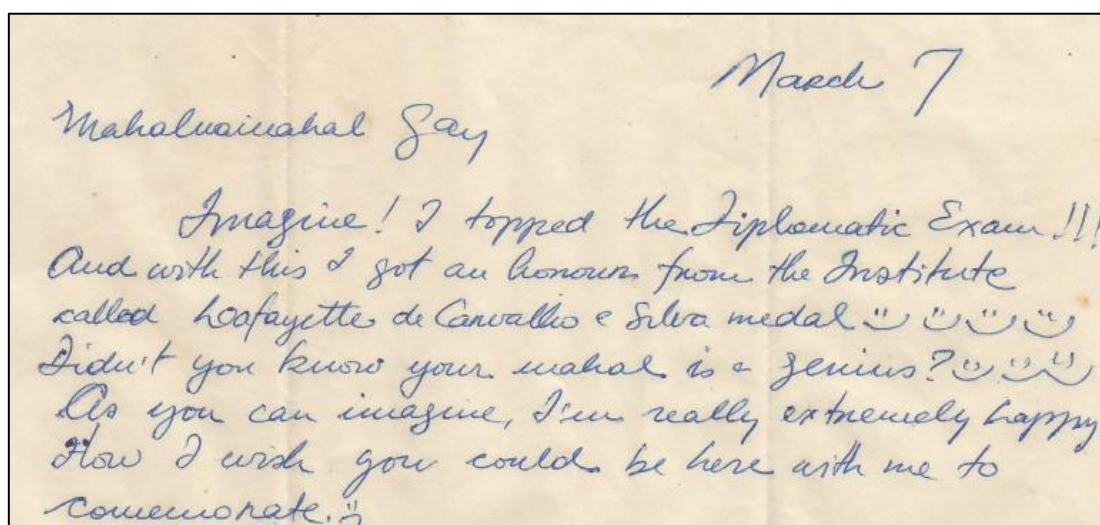 March 7
Mahalnaimahal Gay
Imagine! I topped the Diplomatic Exam!!!
And with this I got an honour from the Institute
called Laafayette de Carvalho e Silva medal
Didn't you know your mahal is a genius?
As you can imagine, I'm really extremely happy
How I wish you could be here with me to
comemorate.